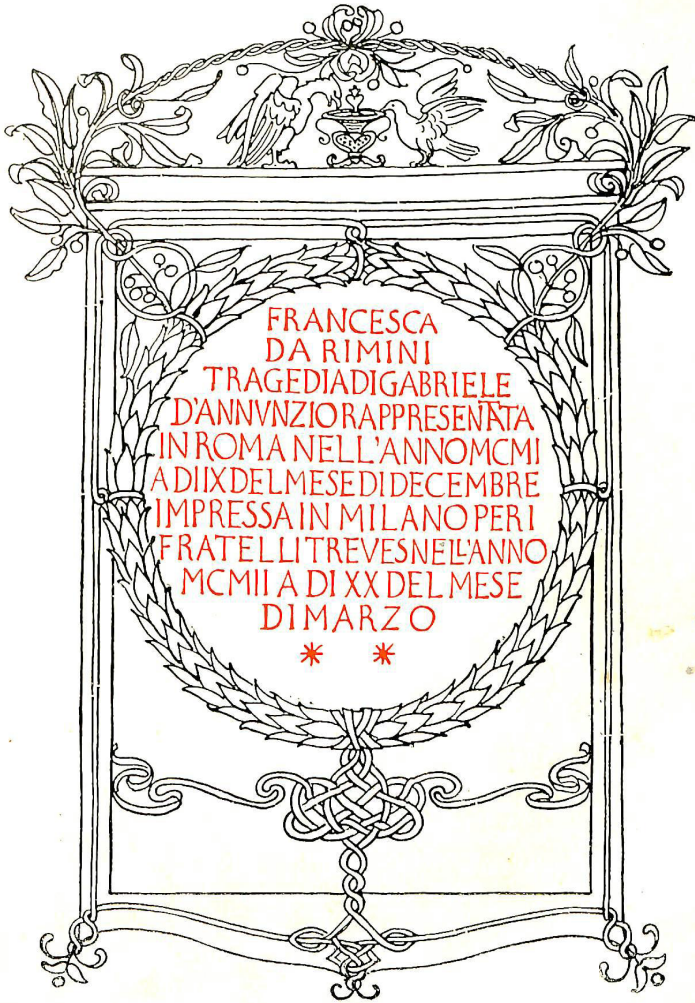 FRANCESCA
DA RIMINI
TRAGEDIA DI GABRIELE
D'ANNVNZIO RAPPRESENTATA
IN ROMA NELL'ANNO MCMI
A DI IX DEL MESE DI DECEMBRE
IMPRESSA IN MILANO PER I
FRATELLI TREVES NELL'ANNO
MCMII A DI XX DEL MESE
DI MARZO
* *